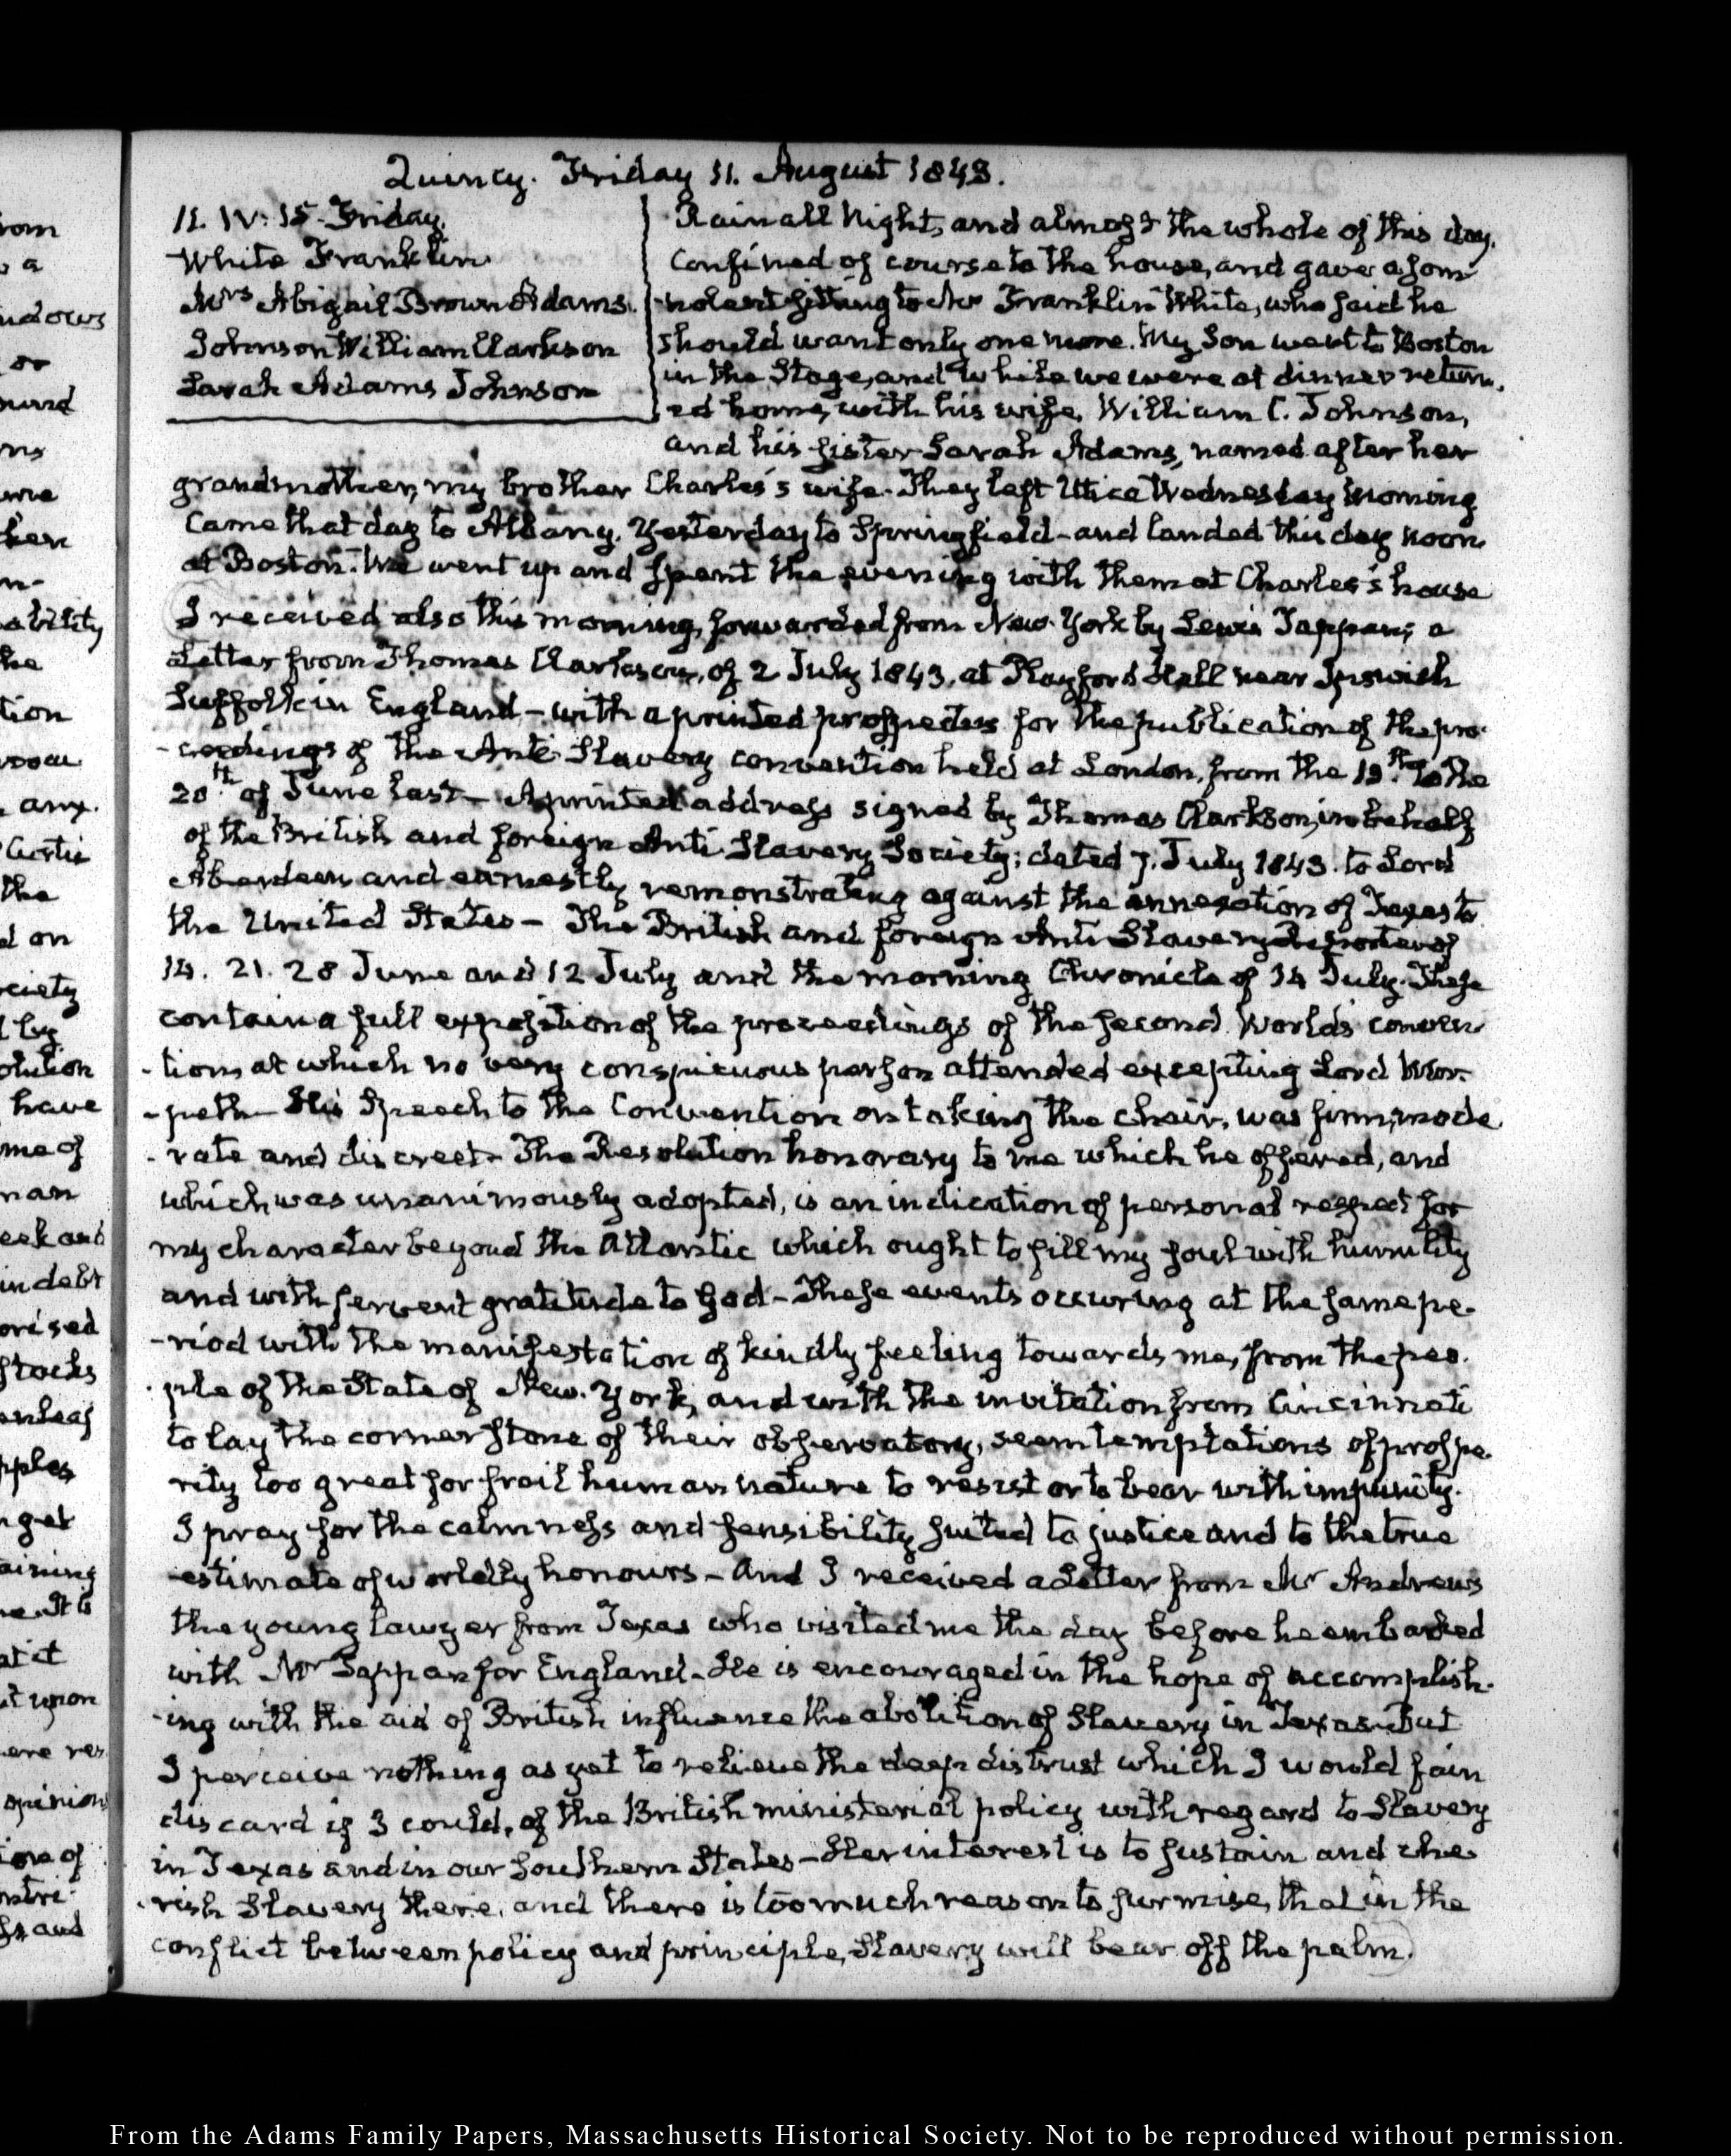 Quincy. Friday 11. August 1843.
11. IV: 15. Friday.
White Franklin
Mrs Abigail Brown Adams.
Johnson William Clarkson
Sarah Adams Johnson
Rain all Night, and almost the whole of this day.
Confined of course to the house, and gave a som-
nolent sitting to Mr Franklin White, who said he
should want only one more. My Son went to Boston
in the Stage, and while we were at dinner return-
ed home, with his wife, William C. Johnson,
and his sister Sarah Adams, named after her
grandmother, my brother Charles's wife. They left Utica Wednesday morning
Came that day to Albany. Yesterday to Springfield - and landed this day noon
at Boston. We went up and spent the evening with them at Charles's house
I received also this morning, forwarded from New-York by Lewis Tappan, a
Letter from Thomas Clarkson, of 2 July 1843. at Playford Hall near Ipswich
Suffolk in England - with a printed prospectus for the publication of the pro-
-ceedings of the Anti Slavery convention held at London, from the 13th to the
20th of June last - A printed address signed by Thomas Clarkson, in behalf
of the British and foreign Anti Slavery Society; dated 7. July 1843. to Lord
Aberdeen and earnestly remonstrating against the annexation of Texas to
the United States - The British and foreign Anti Slavery Reporter of
14. 21. 28 June and 12 July and the morning Chronicle of 14 July. These
contain a full exposition of the proceedings of the second World's conven-
-tion, at which no very conspicuous person attended excepting Lord Mor-
-peth - His Speech to the Convention on taking the chair, was firm, mode
-rate and discreet - The Resolution honorary to me which he offered, and
which was unanimously adopted, is an indication of personal respect for
my character beyond the Atlantic which ought to fill my soul with humility
and with fervent gratitude to God - These events occurring at the same pe-
-riod with the manifestation of kindly feeling towards me, from the peo-
-ple of the State of New-York, and with the invitation from Cincinnati
to lay the corner stone of their observatory, seem temptations of prospe-
rity too great for frail human nature to resist or to bear with impunity.
I pray for the calmness and sensibility suited to justice and to the true
estimate of worldly honours - And I received a Letter from Mr Andrews
the young lawyer from Texas who visited me the day before he embarked
with Mr Tappan for England - He is encouraged in the hope of accomplish-
-ing with the aid of British influence the abolition of Slavery in Texas - But
I perceive nothing as yet to relieve the deep distrust which I would fain
discard if I could, of the British ministerial policy with regard to Slavery
in Texas and in our Southern States - Her interest is to sustain and che-
-rish Slavery there, and there is too much reason to surmise, that in the
conflict between policy and principle, Slavery will bear off the palm.
From the Adams Family Papers, Massachusetts Historical Society. Not to be reproduced without permission.